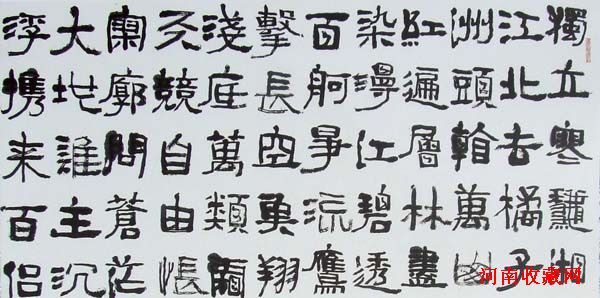 獨立寒龝湘
江北去橘子
洲頭萬山
紅遍層林盡
染漫江碧透
百舸爭流鷹
擊長空魚翔
淺底萬類霜
天競自由悵
寥廓問蒼茫
大地誰主沉
浮携来百侣
河南收藏网